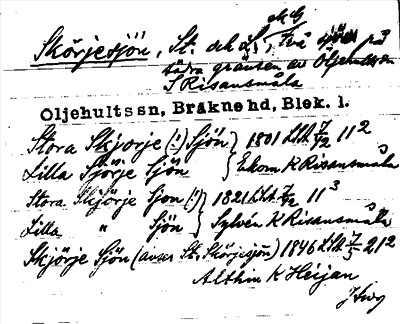 Skörjesjön, St. och L., Två sjöar på
södra gränsen av Öljehultssn
S Risansmåla
Öljehultssn, Bräkne hd, Blek. l.
Stora Skjorje (!) Sjön } 1801 Lskt 7/12 11 2
Lilla Sjörje Sjön } Ekom K Risansmåla
Stora Skjörje Sjon (!) } 1821 Lskt 7/12 11 3
Lilla " Sjön } Sylvén K Risansmåla
Skjörje Sjön (avser St. Skörjesjön) 1846 Lskt 7/5 2,12
Althin K Heijan